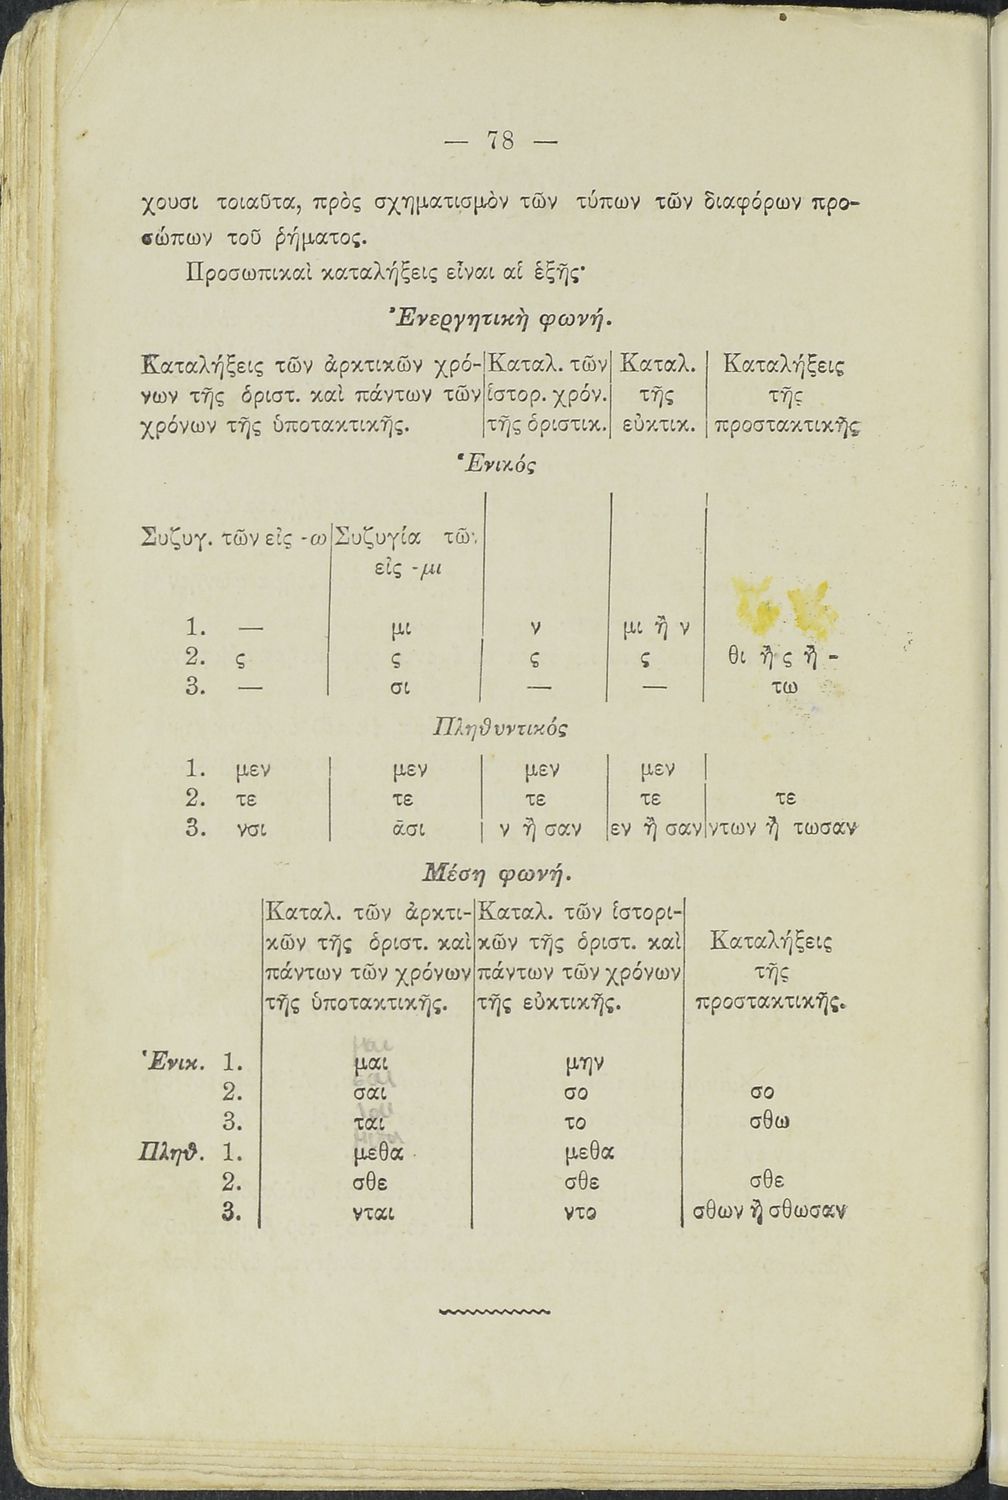 — 78 —
χουσι τοιαῦτα, πρὸς σχηματισμὸν τῶν τύπων τῶν διαφόρων προ-
σώπων τοῦ ῥήματος.
Προσωπικαὶ καταλήξεις εἶναι αἱ ἑξῆς·
Ἐνεργητικὴ φωνή.
Καταλήξεις τῶν ἀρκτικῶν χρό- Καταλ. τῶν Καταλ. Καταλήξεις
νων τῆς ὁριστ. καὶ πάντων τῶν ἱστορ. χρόν. τῆς τῆς
χρόνων τῆς ὑποτακτικῆς. τῆς ὁριστικ. εὐκτικ. προστακτικῆς
Ἑνικός
Συζυγ. τῶν εἰς -ω Συζυγία τῶν
εἰς -μι
1. — μι ν μι ἢ ν
2. ς ς ς ς θι ἢ ς ἢ -
3. — σι — — τω
Πληθυντικός
1. μεν μεν μεν μεν
2. τε τε τε τε τε
3. νσι ᾶσι ν ἢ σαν εν ἢ σαν ντων ἢ τωσαν
Μέση φωνή.
Καταλ. τῶν ἀρκτι- Καταλ. τῶν ἱστορι-
κῶν τῆς ὁριστ. καὶ κῶν τῆς ὁριστ. καὶ Καταλήξεις
πάντων τῶν χρόνων πάντων τῶν χρόνων τῆς
τῆς ὑποτακτικῆς. τῆς εὐκτικῆς. προστακτικῆς.
Ἑνικ. 1. μαι μην
2. σαι σο σο
3. ται το σθω
Πληθ. 1. μεθα μεθα
2. σθε σθε σθε
3. νται ντο σθων ἢ σθωσαν